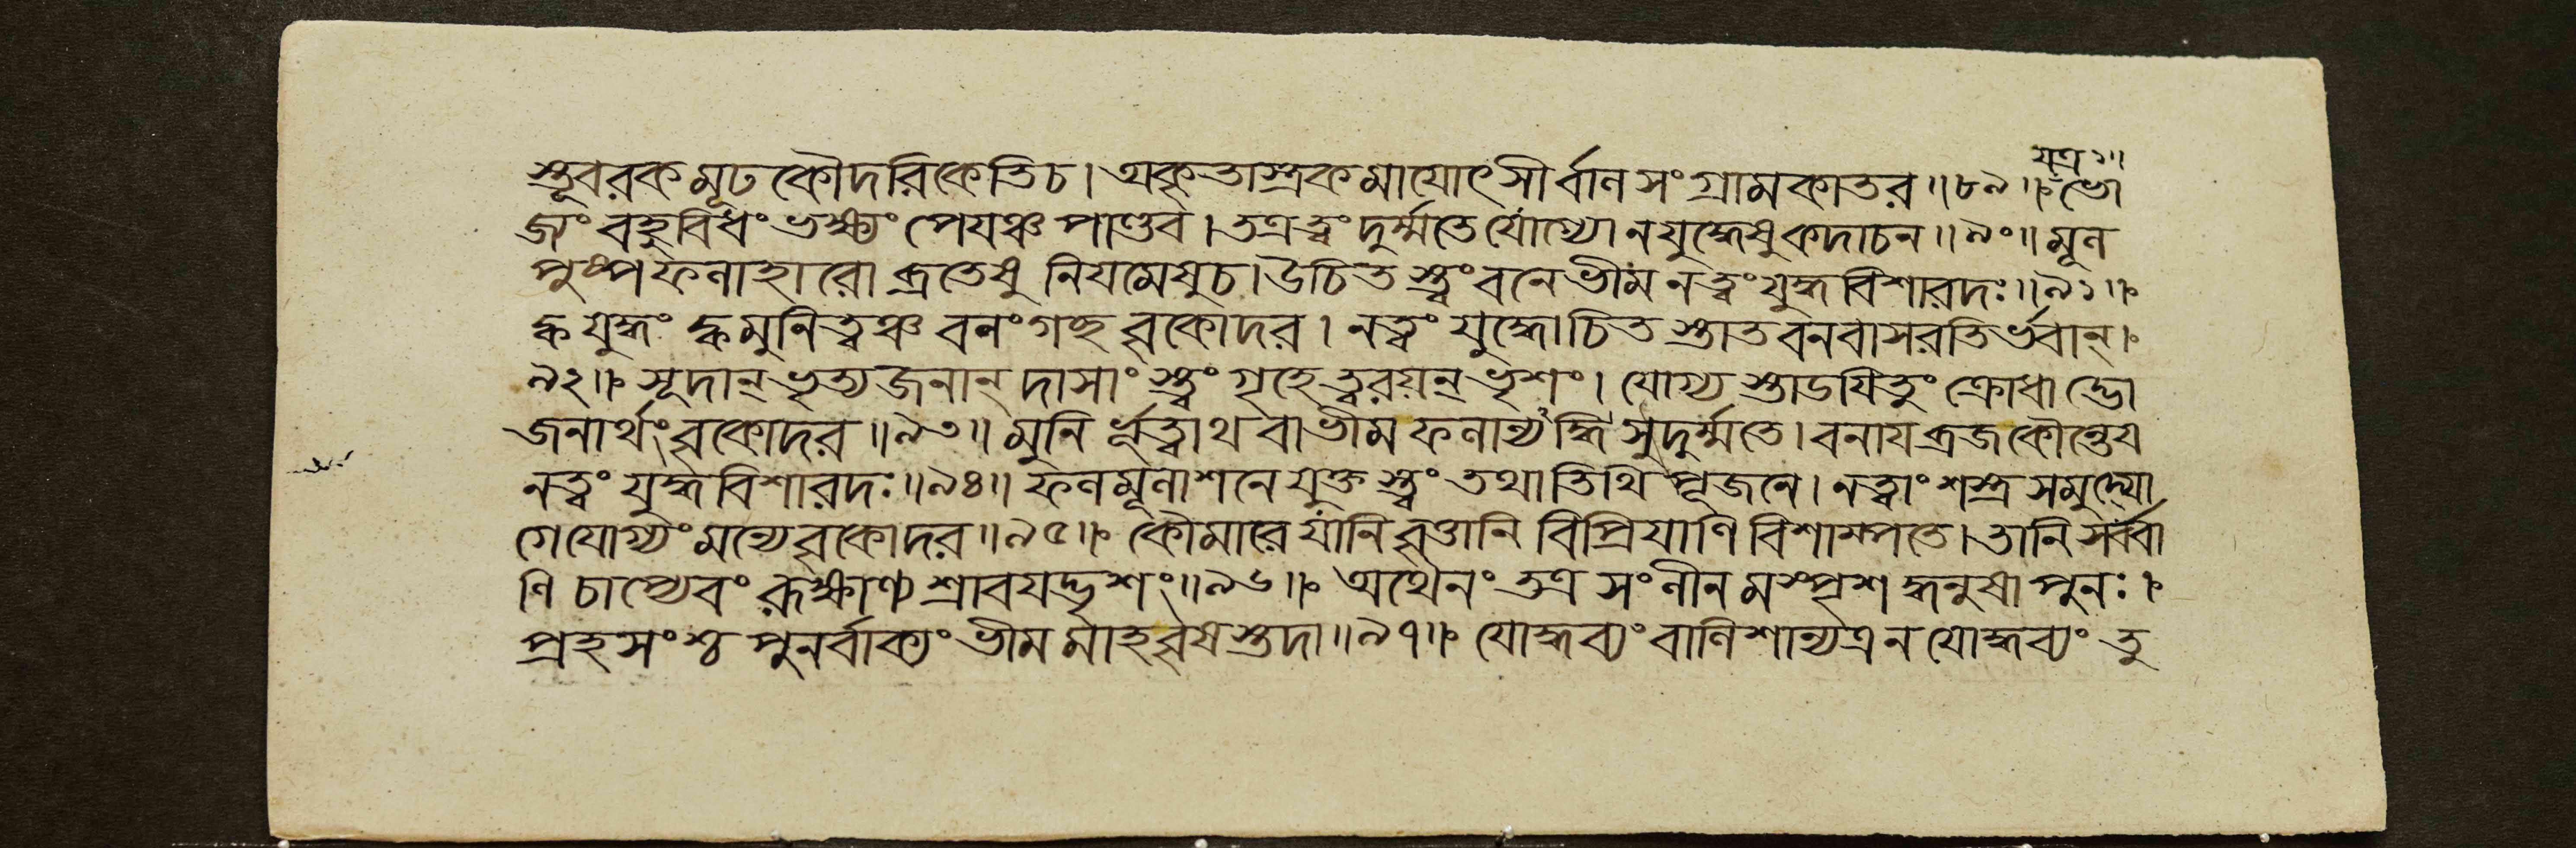 যত্র ১॥
স্তূবরক মূঢ কৌদরিকেতি চ। অকৃতাস্ত্রক মাযোৎসীর্বাণ সংগ্রামকাতর॥৮৯॥ ভো
জ্যং বহুবিধং ভক্ষ্যং পেযঞ্চ পাণ্ডব। তত্র ত্বং দুর্ম্মতে যোগ্যো ন যুদ্ধেষু কদাচন॥৯০॥ মূল
পুষ্পফলাহারো ব্রতেষু নিযমেষু চ। উচিতস্ত্বং বনে ভীম ন ত্বং যুদ্ধবিশারদঃ॥৯১॥
ক্ব যুদ্ধং ক্ব মুনিত্বঞ্চ বনং গচ্ছ বৃকোদর। ন ত্বং যুদ্ধোচিতস্তাত বনবাসরতির্ভবান্।
৯২॥ সূদান্ ভৃত্যজনান্ দাসাংস্ত্বং গৃহে ত্বরয়ন্ ভৃশং। যোগ্যস্তাডযিতুং ক্রোধাদ্ভো
জনার্থং বৃকোদর॥৯৩॥ মুনির্ভূত্বাথবা ভীম ফলান্যদ্ধি সুদুর্ম্মতে। বনায ব্রজ কৌন্তেয
ন ত্বং যুদ্ধবিশারদঃ॥৯৪॥ ফলমূলাশনে যুক্তস্ত্বং তথাতিথিপূজনে। ন ত্বাং শস্ত্রসমুদ্যো
গে যোগ্যং মন্যে বৃকোদর॥৯৫॥ কৌমারে যানি বৃত্তানি বিপ্রিযাণি বিশাম্পতে। তানি সর্ব্বা
ণি চাপ্যেবং রূক্ষাণ্যশ্রাবযদ্ভৃশং॥৯৬॥ অথৈনং তত্র সংলীনমস্পৃশদ্ধনুষা পুনঃ।
প্রহসংশ্চ পুনর্বাক্যং ভীমমাহ বৃষস্তদা॥৯৭॥ যোদ্ধব্যং বালিশান্যত্র ন যোদ্ধব্যং তু